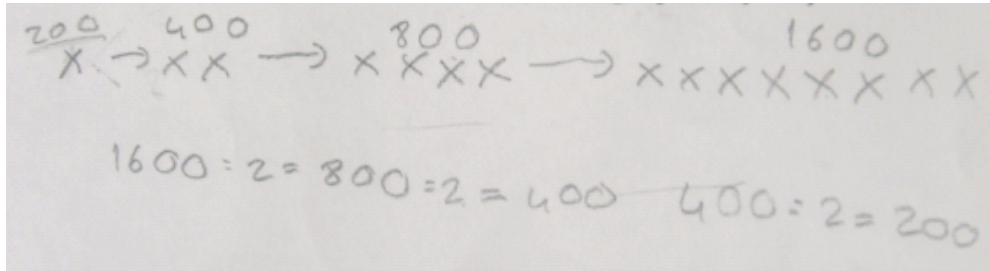 200 400 800 1600
x → x x → x x x x → x x x x x x x x
1600 : 2 = 800 : 2 = 400 400 : 2 = 200